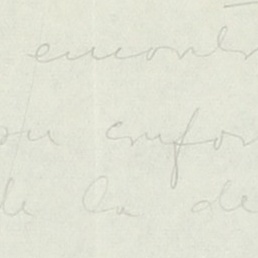 encontr
su confor
de la de